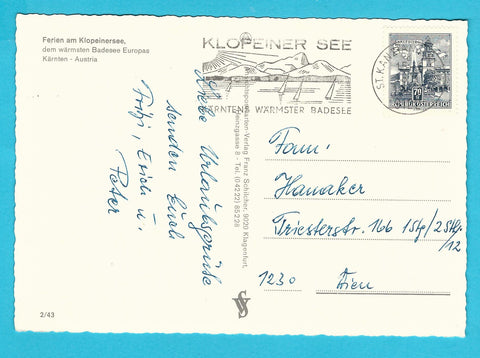 Ferien am Klopeinersee,
dem wärmsten Badesee Europas
Kärnten - Austria
Liebe Urlaubsgrüße
senden Euch
Fritzi, Erich u.
Peter
2/43
Franz Schilcher, 9020 Klagenfurt,
Tel. (04222) 85228
KLOPEINER SEE
KÄRNTENS WÄRMSTER BADESEE
ST.KAN
REPUBLIK ÖSTERREICH
Fam.
Hamaker
Triesterstr. 166 1Stg/2Stg.
/12
1230 Wien